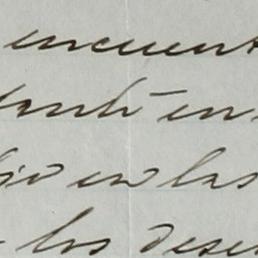 encuent
tanto en
jo en las
los dese